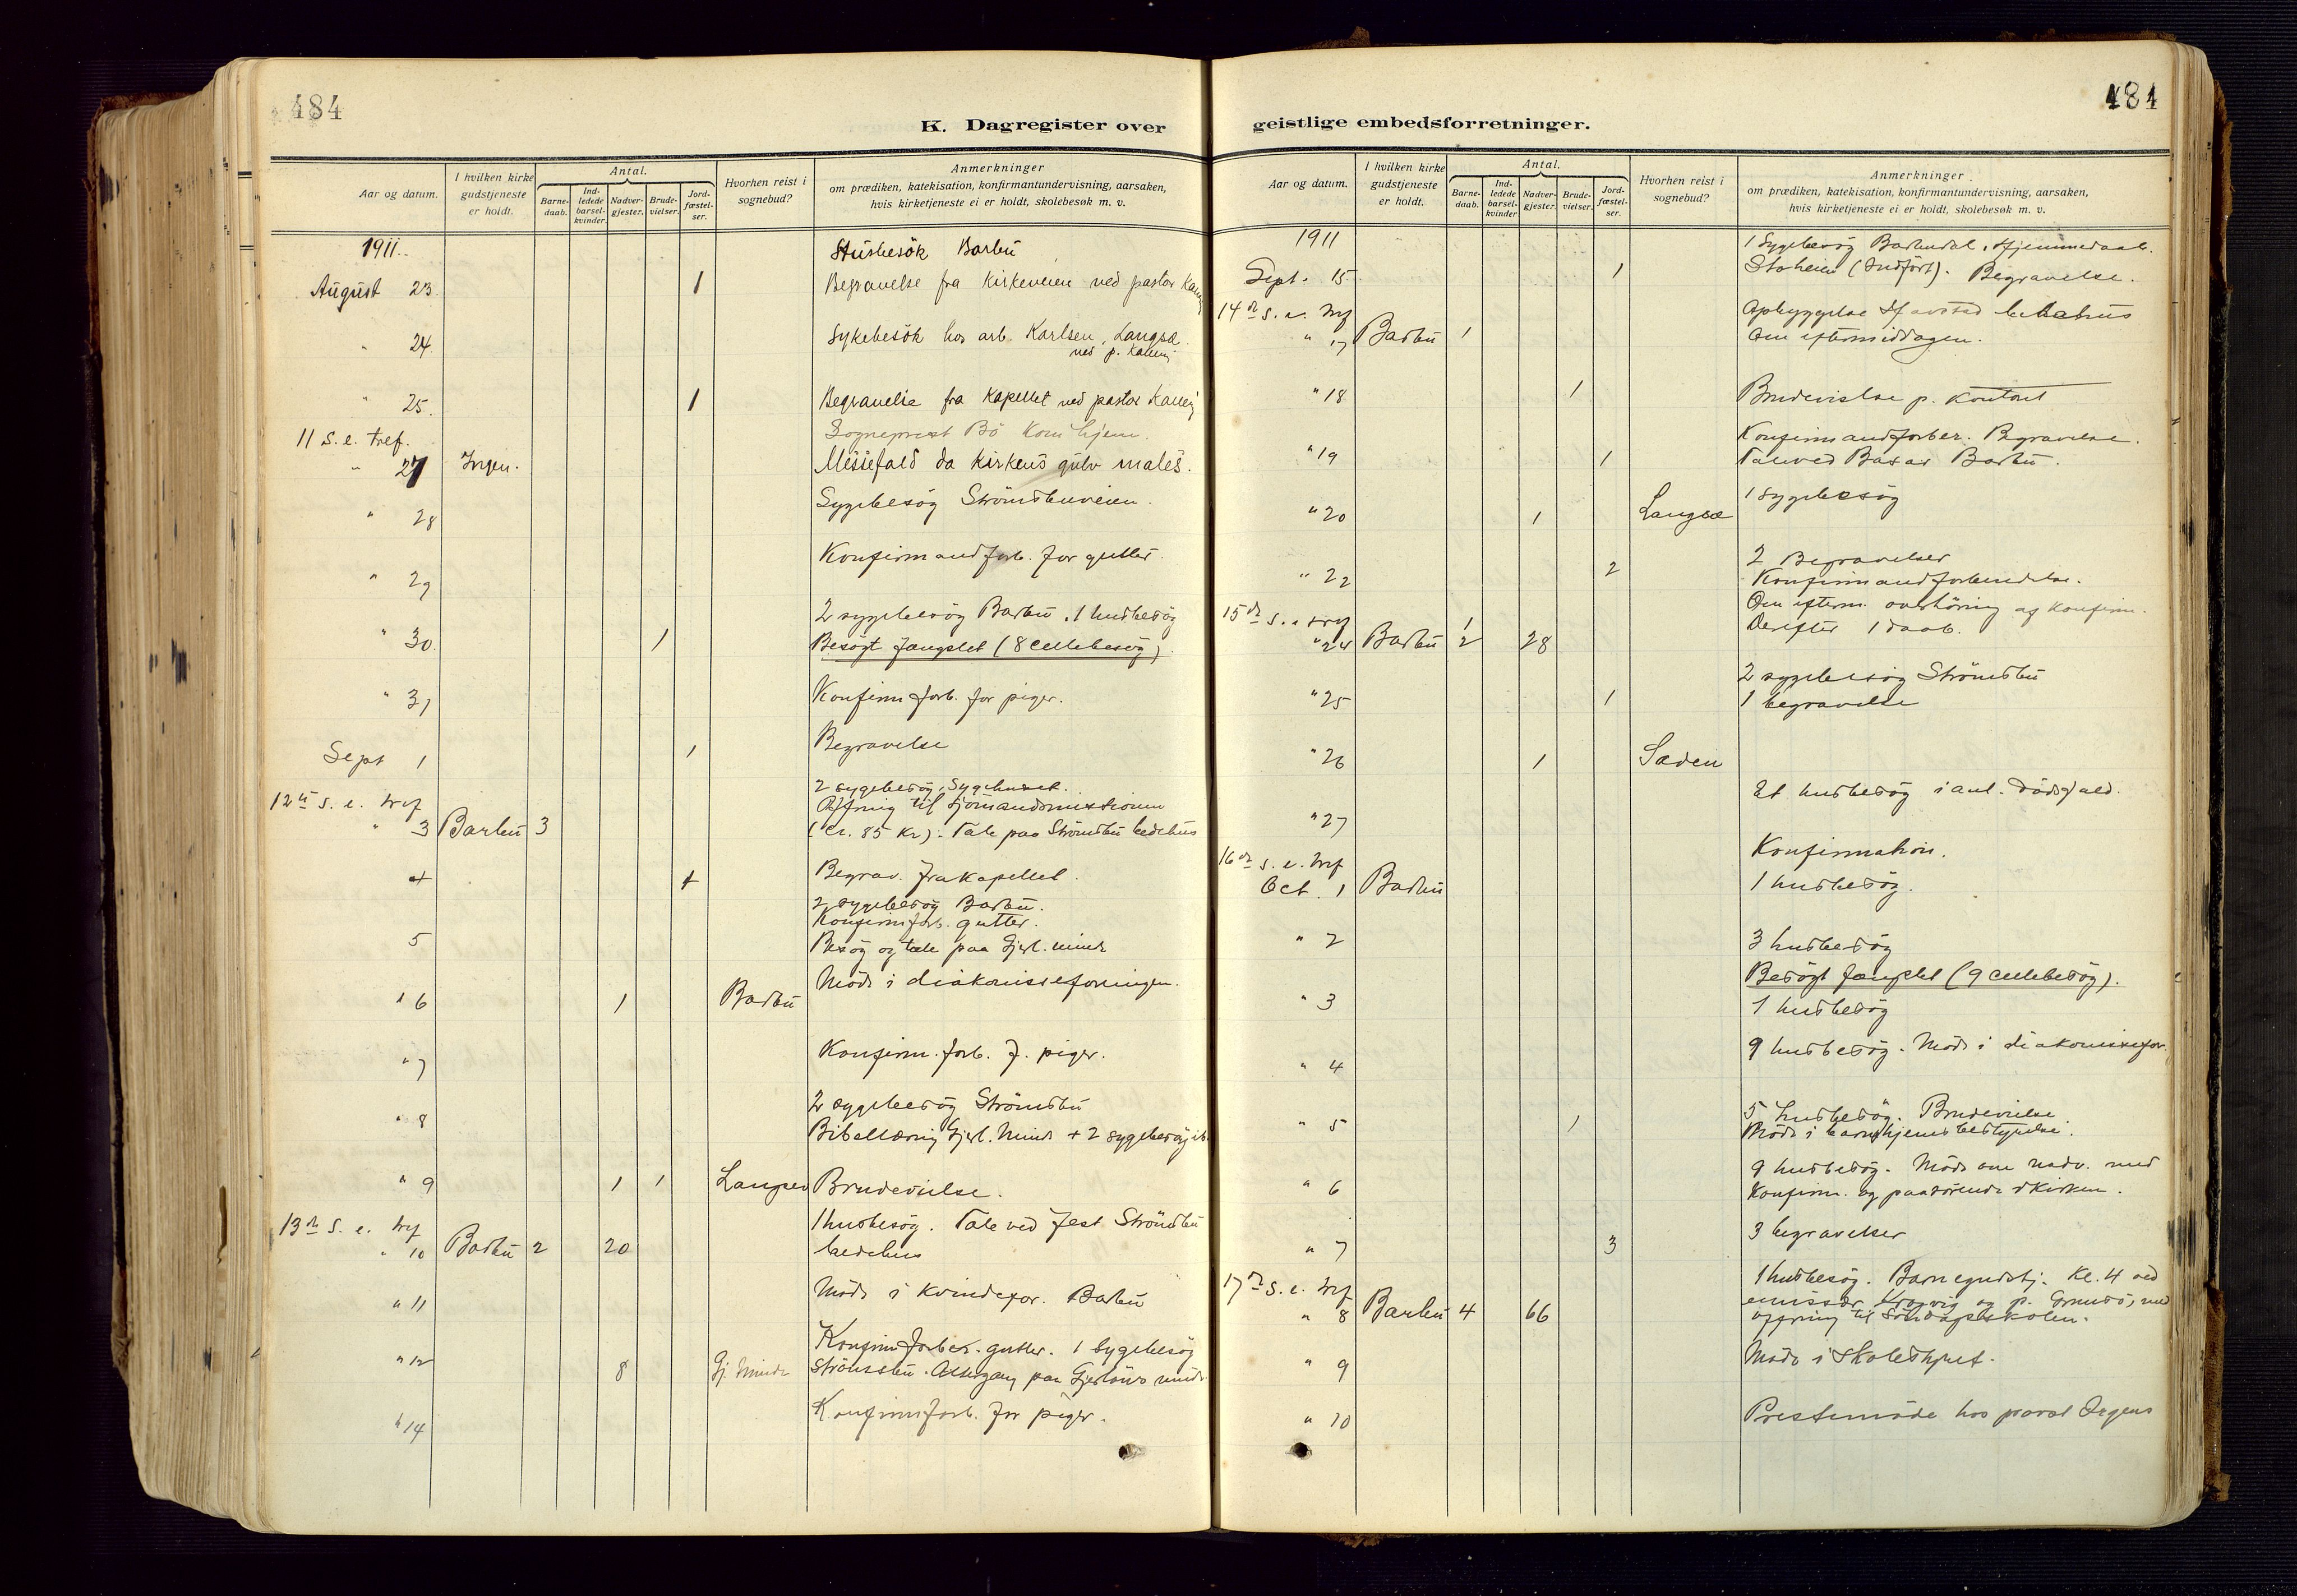 484
K. Dagregister over
Aar og datum.
I hvilken kirke gudstjeneste er holdt.
Antal.
Barne-daab.
Ind-ledede barsel-kvinder.
Nadver-gjester.
Brude-vielser.
Jord-fæstel-ser.
Hvorhen reist i sognebud?
Anmerkninger
om prædiken, katekisation, konfirmantundervisning, aarsaken,
hvis kirketjeneste ei er holdt, skolebesøk m. v.
1911. Husbesök Barbu
August 23. 1 Begravelse fra Kirkeveien ved pastor
" 24 Sykebesök hos arb. Karlsen, Langsæ.
ved p.
" 25. 1 Begravelse fra Kapellet ved pastor
11 s. e. tref. Sogneprest Bö kom hjem.
" 27 Ingen. Messefald da kirkens gulv males.
" 28 Sygebesög Strömsbuveien.
" 29 Konfirmandforb. for gutter.
2 sygebesög Barbu. 1 husbesög
" 30. 1 Besögt fængslet (8 cellebesög).
" 31 Konfirm forb. for piger.
Sept 1 1 Begravelse
2 sygebesög, Sygehuset.
12te s. e. tref Offring til Sjömandsmissionen
" 3 Barbu 3 (Cr. 85 Kr). Tale paa Strömsbu bedehus
4 1 Begrav. fra kapellet.
2 sygebesög Barbu.
Konfirmforb. gutter.
5 Besög og tale paa Gjerl. minde
" 6 1 Barbu Möde i diakonisseforeningen.
" 7 Konfirm. forb. f. piger.
2 sygebesög Strömsbu
" 8 Bibellæsning Gjerl. Minde + 2 sygebesög
" 9 1 1 Langsev Brudevielse.
13de s. e. tref 1 husbesög. Tale ved fest Strömsbu
" 10 Barbu 2 20 bedehus
" 11 Möde i kvindefor. Barbu
Konfirm forber. gutter. 1 sygebesög
" 12 8 Gj. Minde Strömsbu. Altergang paa Gjerlöws minde
" 14 Konfirmforb. for piger.
484
geistlige embedsforretninger.
Aar og datum.
I hvilken kirke gudstjeneste er holdt.
Antal.
Barne-daab.
Ind-ledede barsel-kvinder
Nadver-gjester.
Brude-vielser.
Jord-fæstel-ser.
Hvorhen reist i sognebud?
Anmerkninger
om prædiken, katekisation, konfirmantundervisning, aarsaken,
hvis kirketjeneste ei er holdt, skolebesøk m. v.
1911 1 Sygebesög Barbudal. Hjemmedaab.
Sept. 15 1 (Indfört). Begravelse.
14de s. e. tref Opbyggelse Havstad bedehus
" 17 Barbu 1 Om eftermiddagen.
" 18 1 Brudevielse p. Kontoret
Konfirmandforber. Begravelse.
" 19 1 Tale ved Basar Barbu.
" 20 1 Langsæ 1 sygebesög
2 Begravelser
" 22 2 Konfirmandforberedelse.
15de s. e. tref Om efterm. overhöring af konfirm.
" 24 Barbu 1 2 28 Derefter 1 daab.
2 sygebesög Strömsbu
" 25 1 1 begravelse
" 26 1 Saden
" 27 Et husbesög i anl. dödsfald.
16de s. e. tref Konfirmation.
Oct. 1 Barbu 1 husbesög.
" 2 3 husbesög
Besögt fængslet (9 cellebesög).
" 3 1 husbesög
" 4 9 husbesög. Möde i diakonissefor.
5 husbesög. Brudevielse
" 5 1 Möde i barnehjemsbestyrelse.
9 husbesög. Möde om nadv. med
" 6 konfirm. og paarörende i Kirken.
" 7 3 3 begravelser
17de s. e. tref 1 husbesög. Barnegudstj. Kl. 4 ved
" 8 Barbu 4 66 emissær og p. med
offring til Söndagsskolen.
" 9 Möde i Skolestyret.
" 10 Prestemöde hos provst